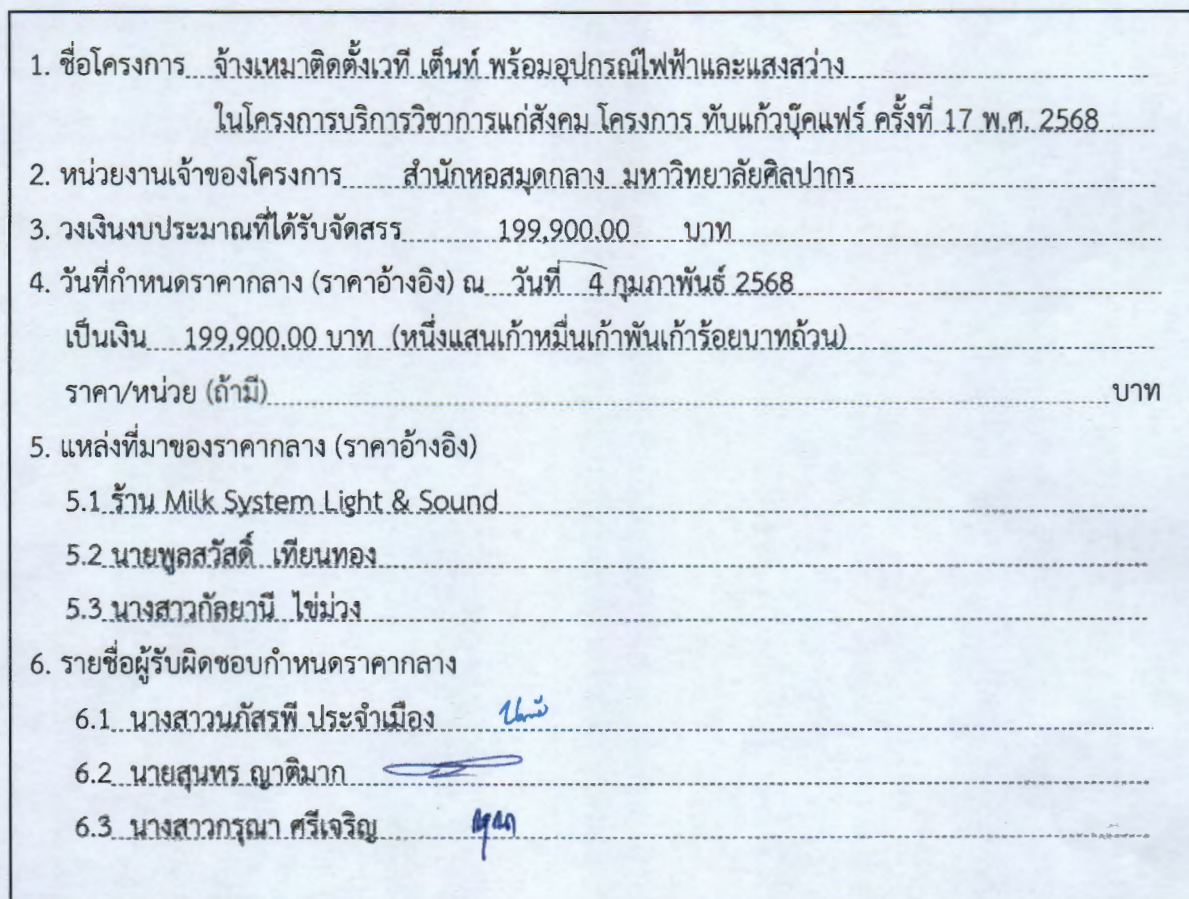 1. ชื่อโครงการ จ้างเหมาติดตั้งเวที เต็นท์ พร้อมอุปกรณ์ไฟฟ้าและแสงสว่าง
ในโครงการบริการวิชาการแก่สังคม โครงการ ทับแก้วบุ๊คแฟร์ ครั้งที่ 17 พ.ศ. 2568
2. หน่วยงานเจ้าของโครงการ สำนักหอสมุดกลาง มหาวิทยาลัยศิลปากร
3. วงเงินงบประมาณที่ได้รับจัดสรร 199,900.00 บาท
4. วันที่กำหนดราคากลาง (ราคาอ้างอิง) ณ วันที่ 4 กุมภาพันธ์ 2568
เป็นเงิน 199,900.00 บาท (หนึ่งแสนเก้าหมื่นเก้าพันเก้าร้อยบาทถ้วน)
ราคา/หน่วย (ถ้ามี) บาท
5. แหล่งที่มาของราคากลาง (ราคาอ้างอิง)
5.1 ร้าน Milk System Light & Sound
5.2 นายพูลสวัสดิ์ เทียนทอง
5.3 นางสาวกัลยานี ไข่ม่วง
6. รายชื่อผู้รับผิดชอบกำหนดราคากลาง
6.1 นางสาวนภัสรพี ประจำเมือง
6.2 นายสุนทร ญาติมาก
6.3 นางสาวกรุณา ศรีเจริญ